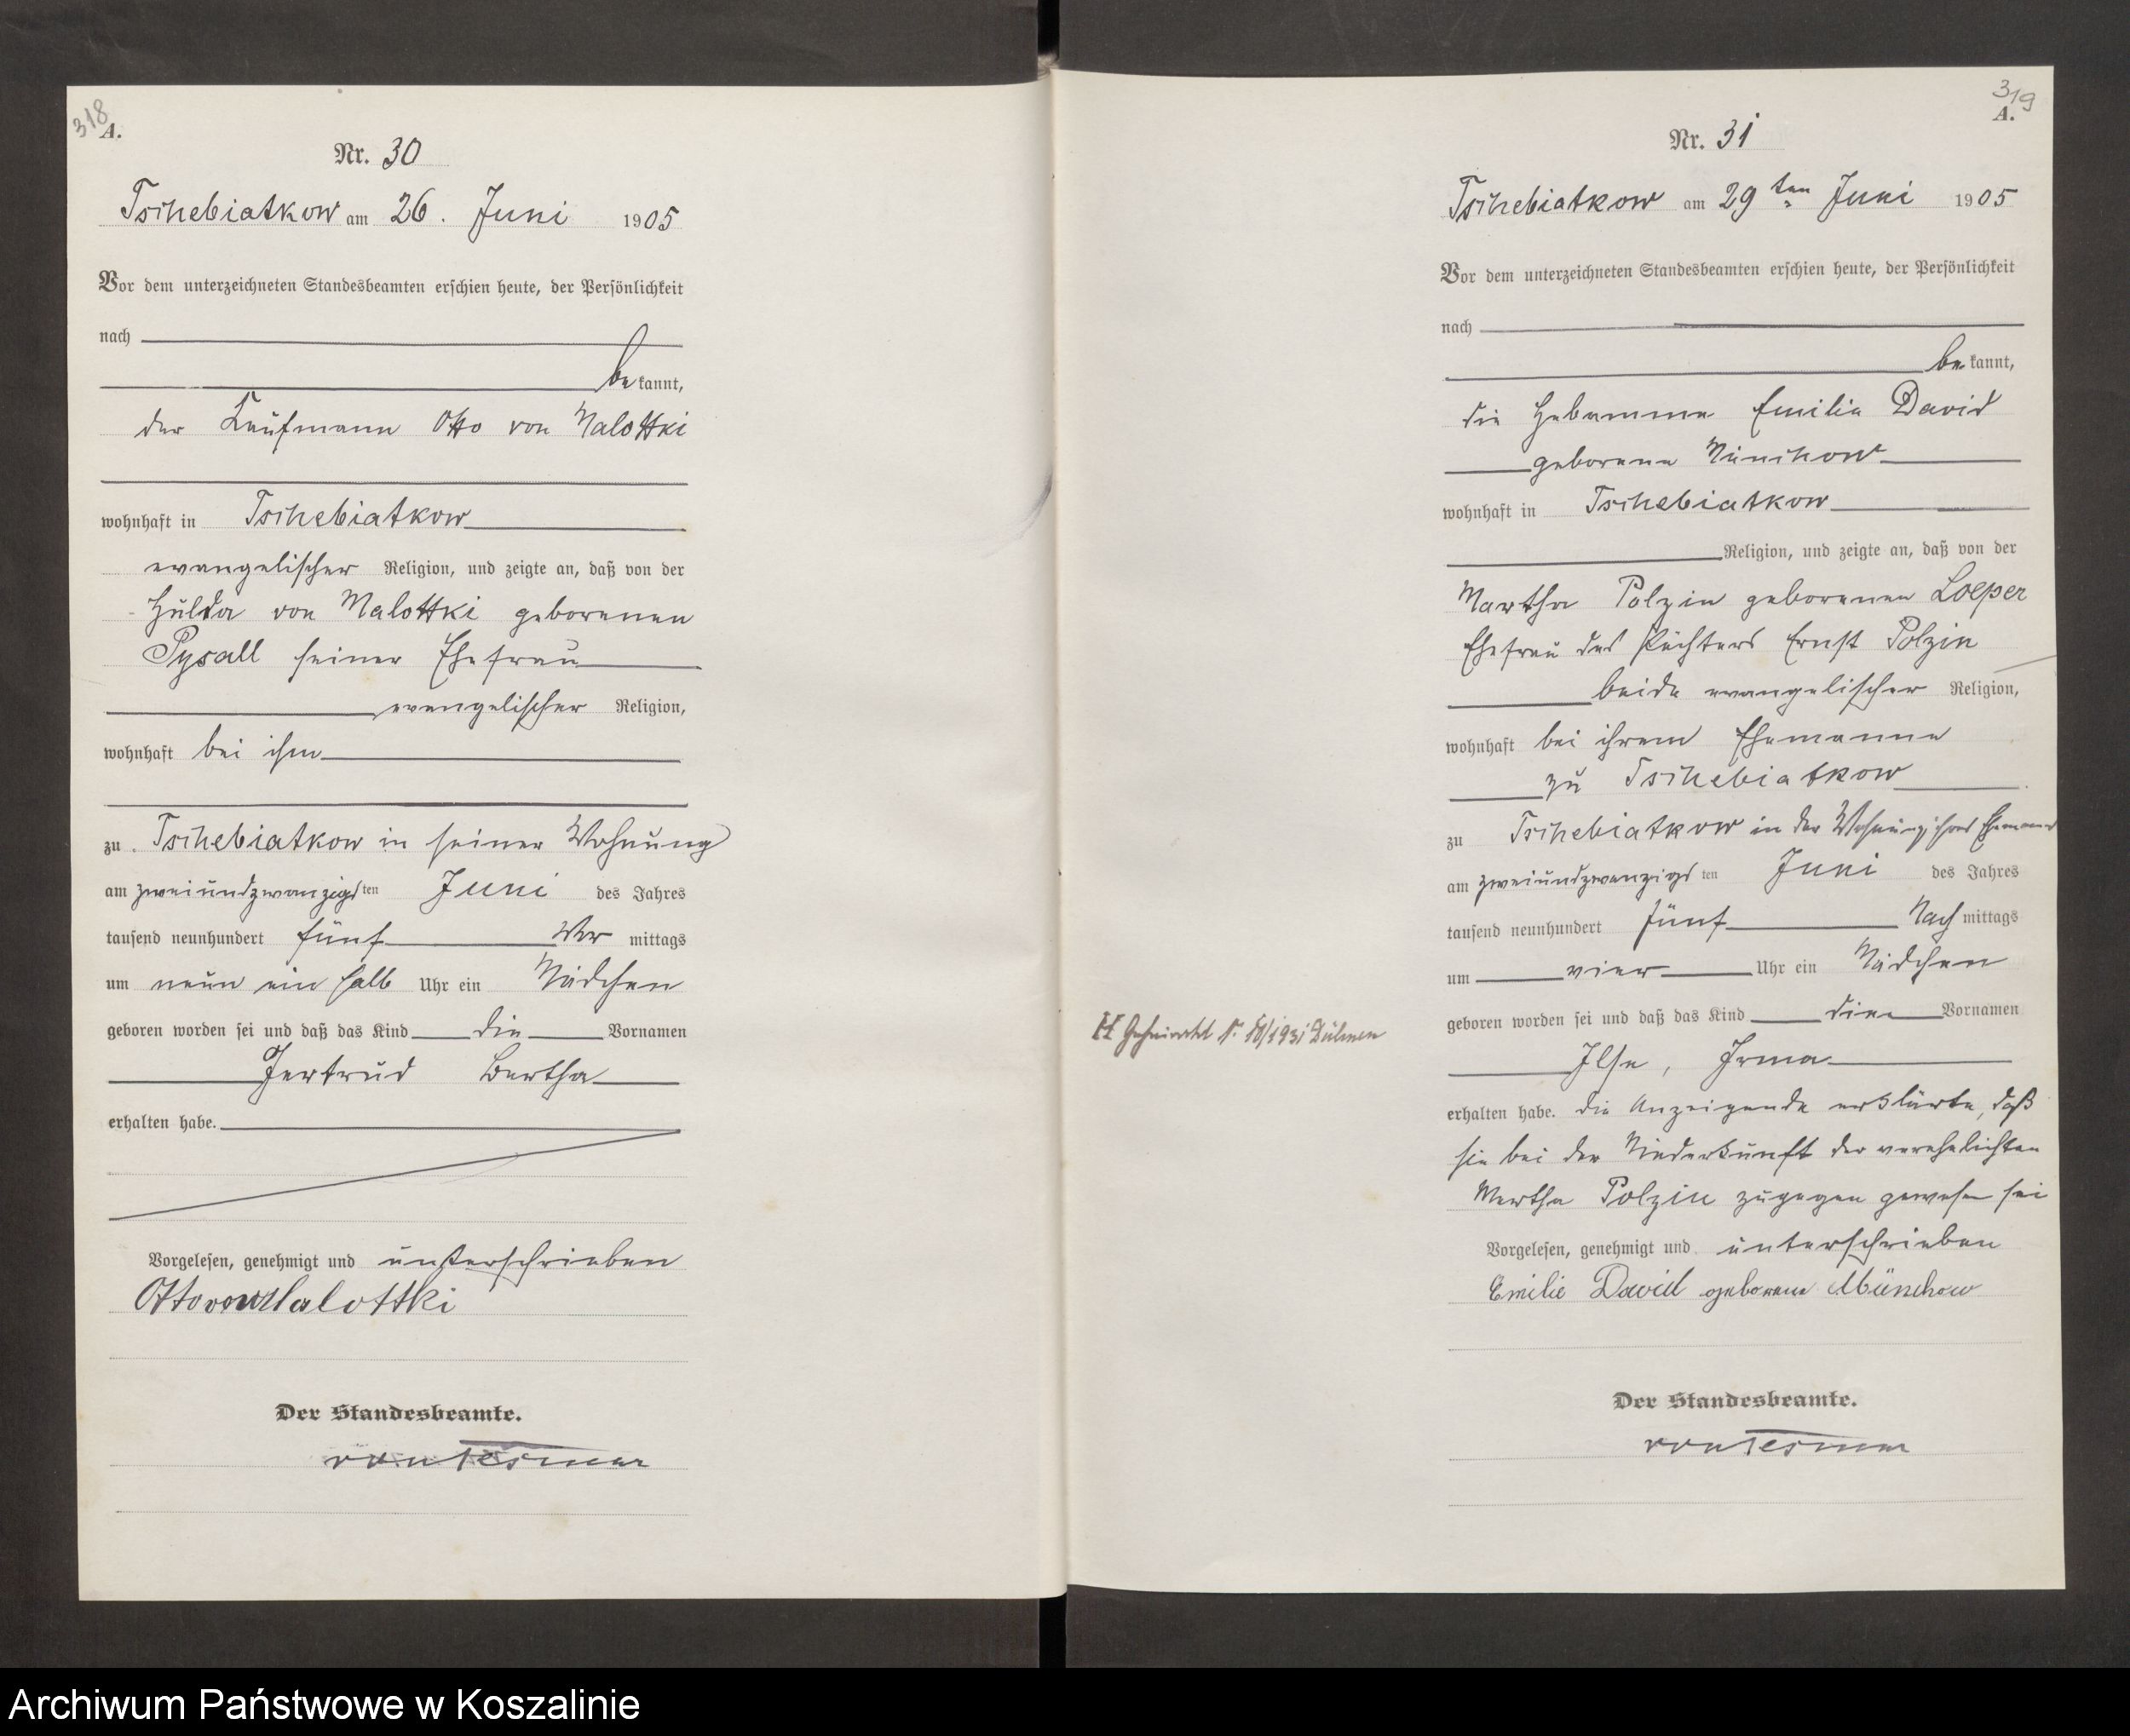 318
A.
Nr. 30
Tschebiatkow am 26. Juni 1905
Vor dem unterzeichneten Standesbeamten erschien heute, der Persönlichkeit
nach
be kannt,
der Kaufmann Otto von Malottki
wohnhaft in Tschebiatkow
evangelischer Religion, und zeigte an, daß von der
Hulda von Malottki geborenen
Pysall seiner Ehefrau
evangelischer Religion,
wohnhaft bei ihm
zu Tschebiatkow in seiner Wohnung
am zweiundzwanzigsten Juni des Jahres
tausend neunhundert fünf Vor mittags
um neun ein halb Uhr ein Mädchen
geboren worden sei und daß das Kind die Vornamen
Gertrud Bertha
erhalten habe.
Vorgelesen, genehmigt und unterschrieben
Otto von Malottki
Der Standesbeamte.
von Tesmar
319
A.
Nr. 31
Tschebiatkow am 29ten Juni 1905
Vor dem unterzeichneten Standesbeamten erschien heute, der Persönlichkeit
nach
be kannt,
die Hebamme Emilie David
geborene Münchow
wohnhaft in Tschebiatkow
Religion, und zeigte an, daß von der
Martha Polzin geborenen Loeper
Ehefrau des Pächters Ernst Polzin
beide evangelischer Religion,
wohnhaft bei ihrem Ehemanne
zu Tschebiatkow
zu Tschebiatkow in der Wohnung ihres Ehemanns
am zweiundzwanzigsten Juni des Jahres
tausend neunhundert fünf Nach mittags
um vier Uhr ein Mädchen
geboren worden sei und daß das Kind die Vornamen
Ilse, Irma
erhalten habe. die Anzeigende erklärte, daß
sie bei der Niederkunft der verehelichten
Martha Polzin zugegen gewesen sei
Vorgelesen, genehmigt und unterschrieben
Emilie David geborene Münchow
Der Standesbeamte.
von Tesmar
1931 Dülmen
Archiwum Państwowe w Koszalinie